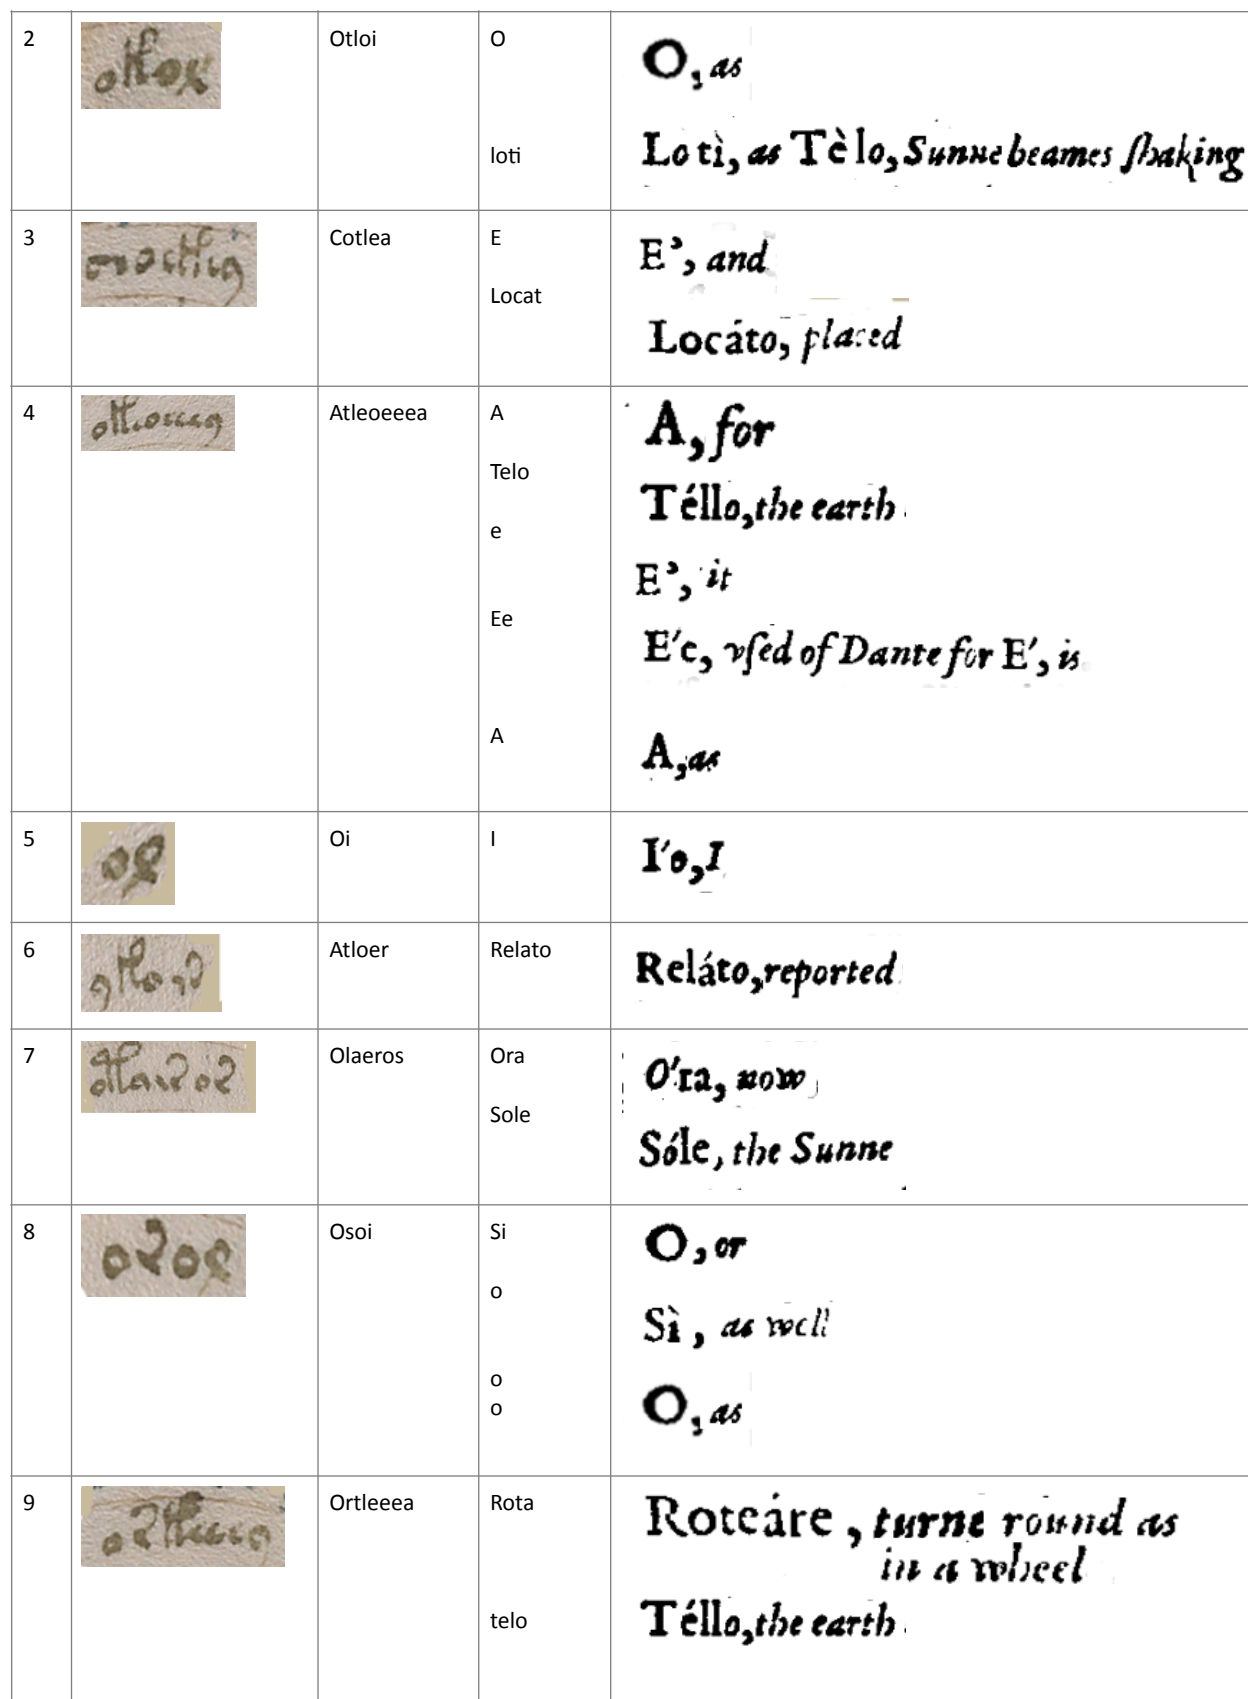 2 Otloi O O, as
loti Lo tì, as Tèlo, Sunne beames ſhaking
3 Cotlea E E', and
Locat Locáto, placed
4 Atleoeeea A A, for
Telo Téllo, the earth.
e E', it
Ee E'e, vſed of Dante for E', is
A A, as
5 Oi I I'o, I
6 Atloer Relato Reláto, reported
7 Olaeros Ora O'ra, now
Sole Sóle, the Sunne
8 Osoi Si O, or
o Sì, as well
o O, as
o
9 Ortleeea Rota Roteáre, turne round as
in a wheel
telo Téllo, the earth.